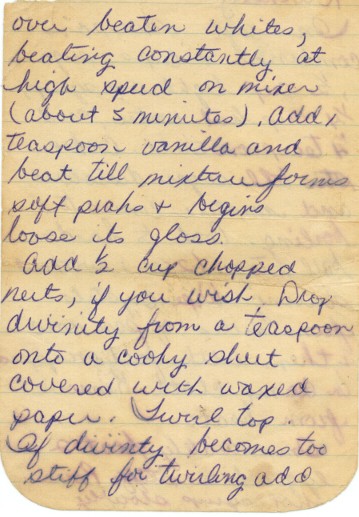 over beaten whites,
beating constantly at
high speed on mixer
(about 5 minutes). add 1
teaspoon vanilla and
beat till mixture forms
soft peaks + begins
loose its gloss.
Add ½ cup chopped
nuts, if you wish Drop
divinity from a teaspoon
onto a cooky sheet
covered with waxed
paper. Swirl top.
If divinity becomes too
stiff for twirling add